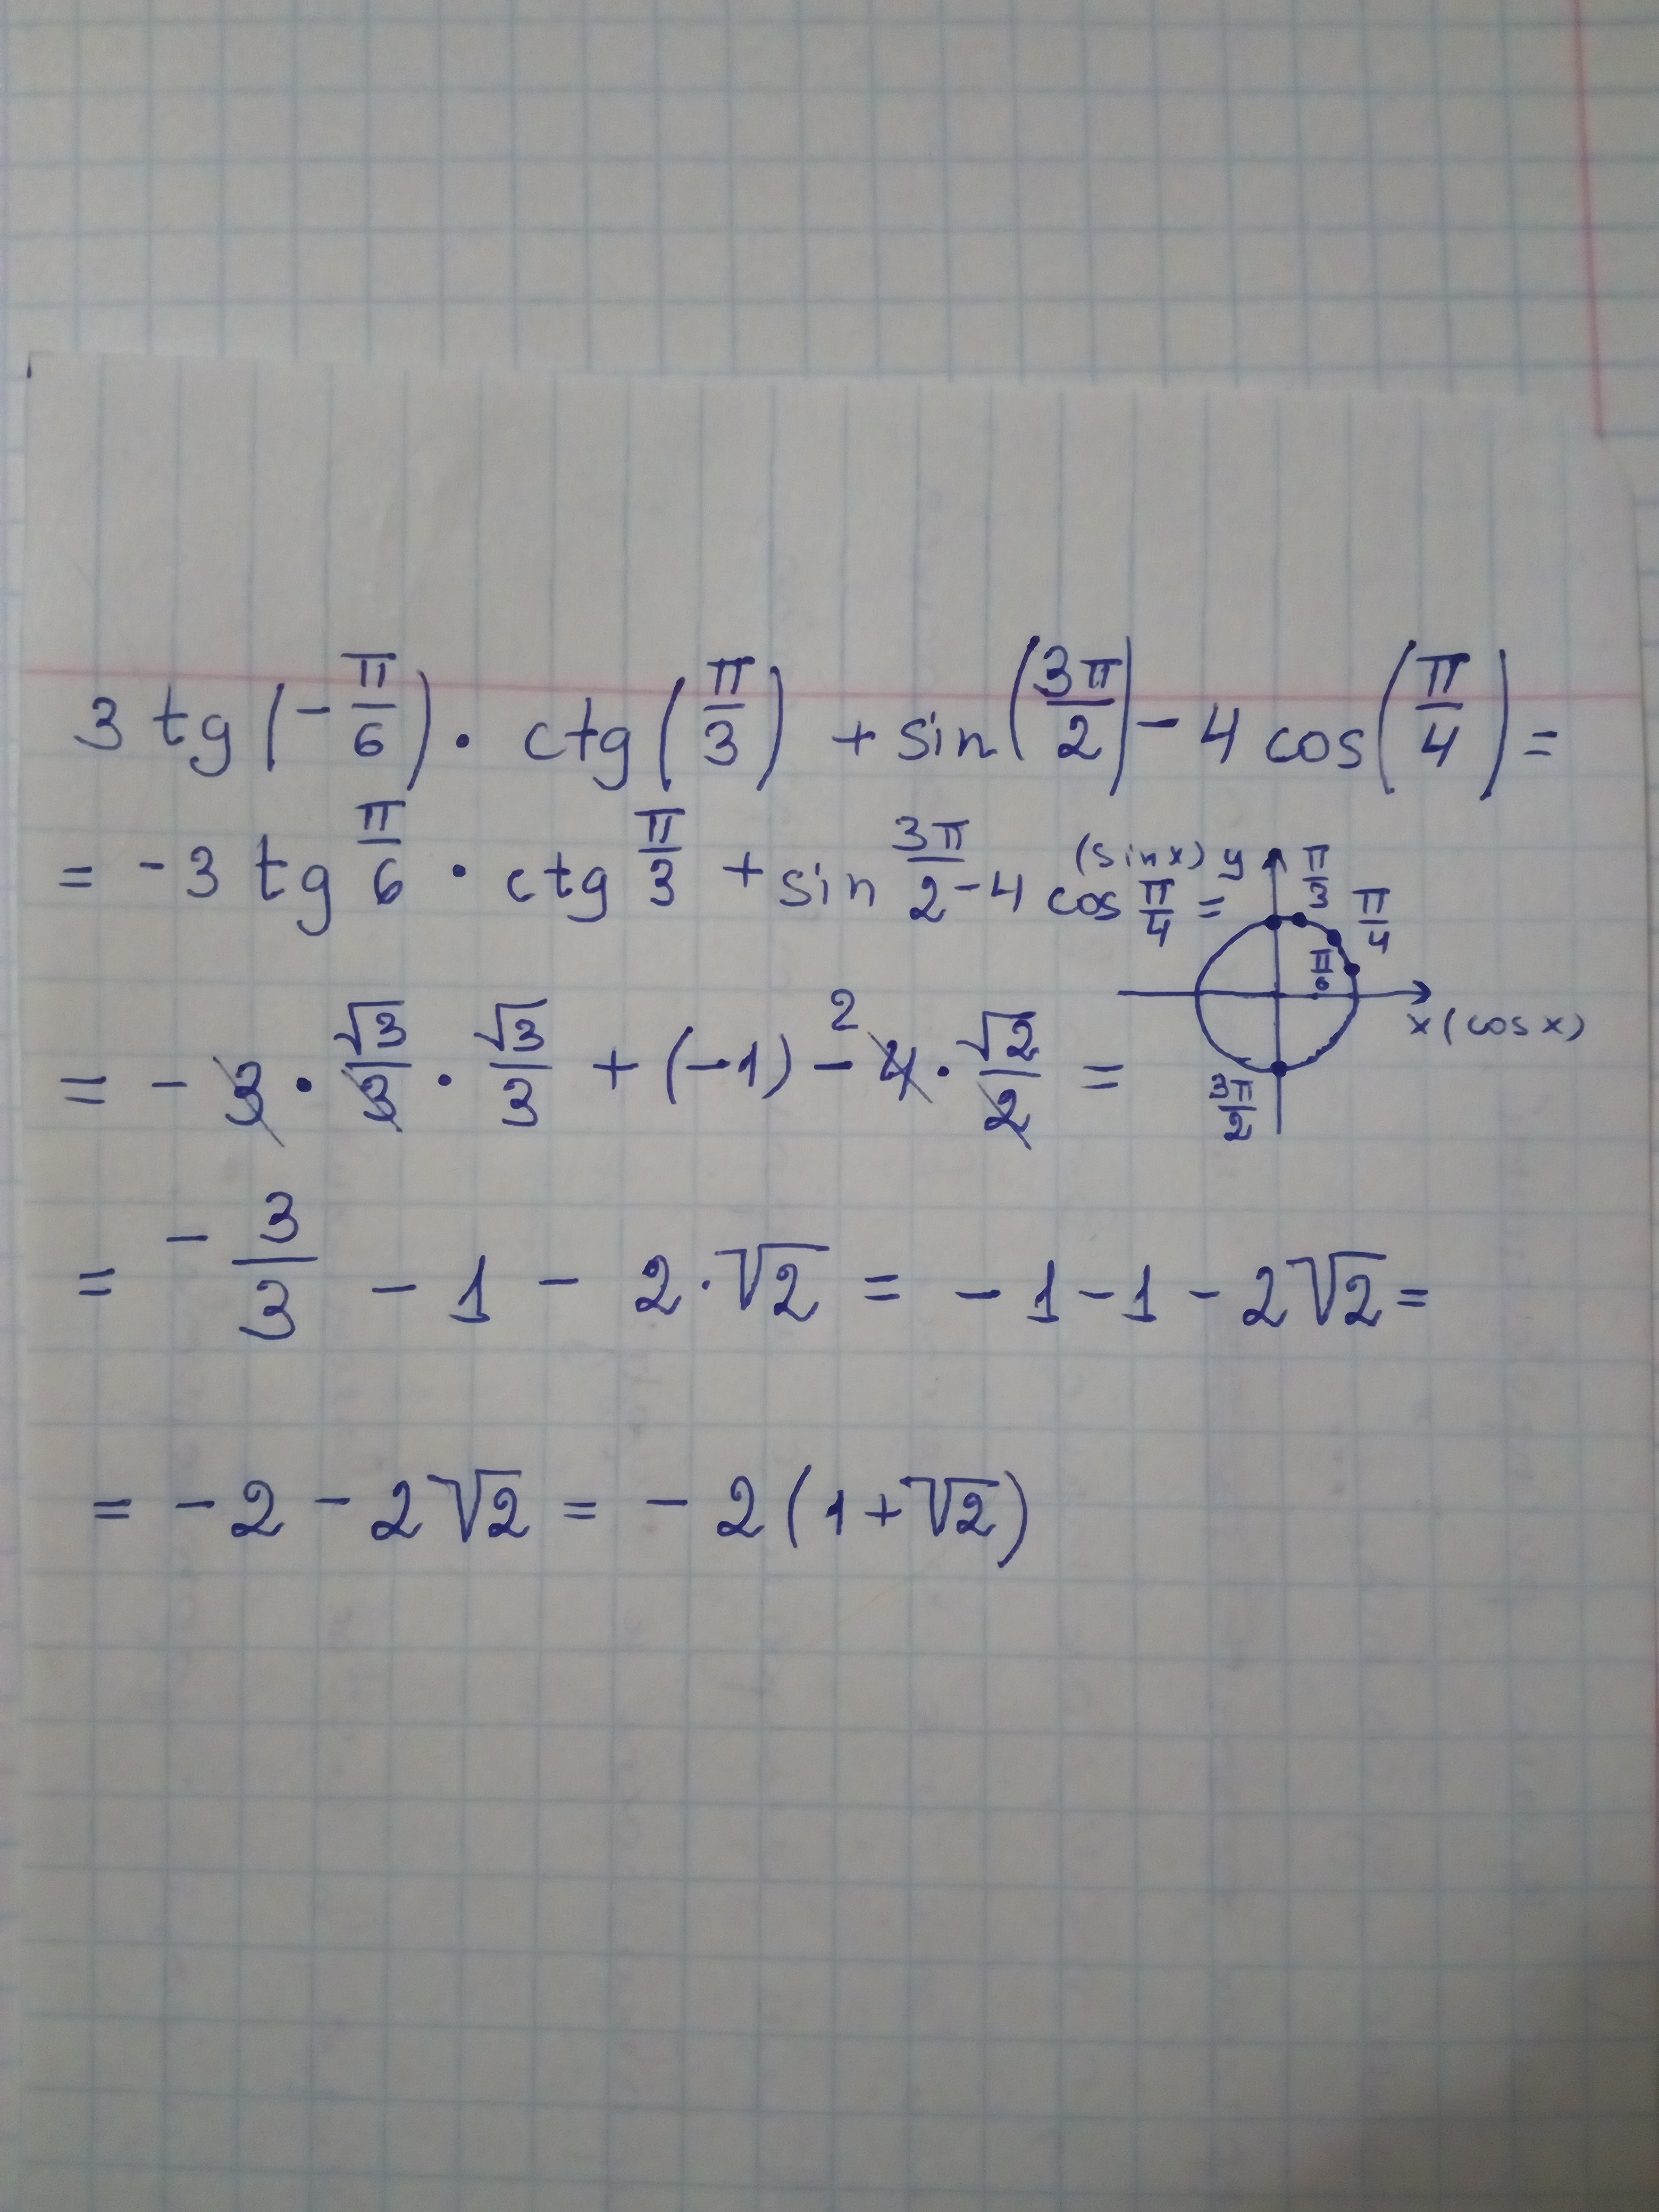 3 tg(-π/6) · ctg(π/3) + sin(3π/2) - 4 cos(π/4) =
= -3 tg π/6 · ctg π/3 + sin 3π/2 - 4 cos π/4 =
(sin x) y
π/3
π/4
π/6
x (cos x)
3π/2
= - 3 · √3/3 · √3/3 + (-1) - 4 · √2/2 =
2
= - 3/3 - 1 - 2·√2 = -1 - 1 - 2√2 =
= -2 - 2√2 = -2(1+√2)